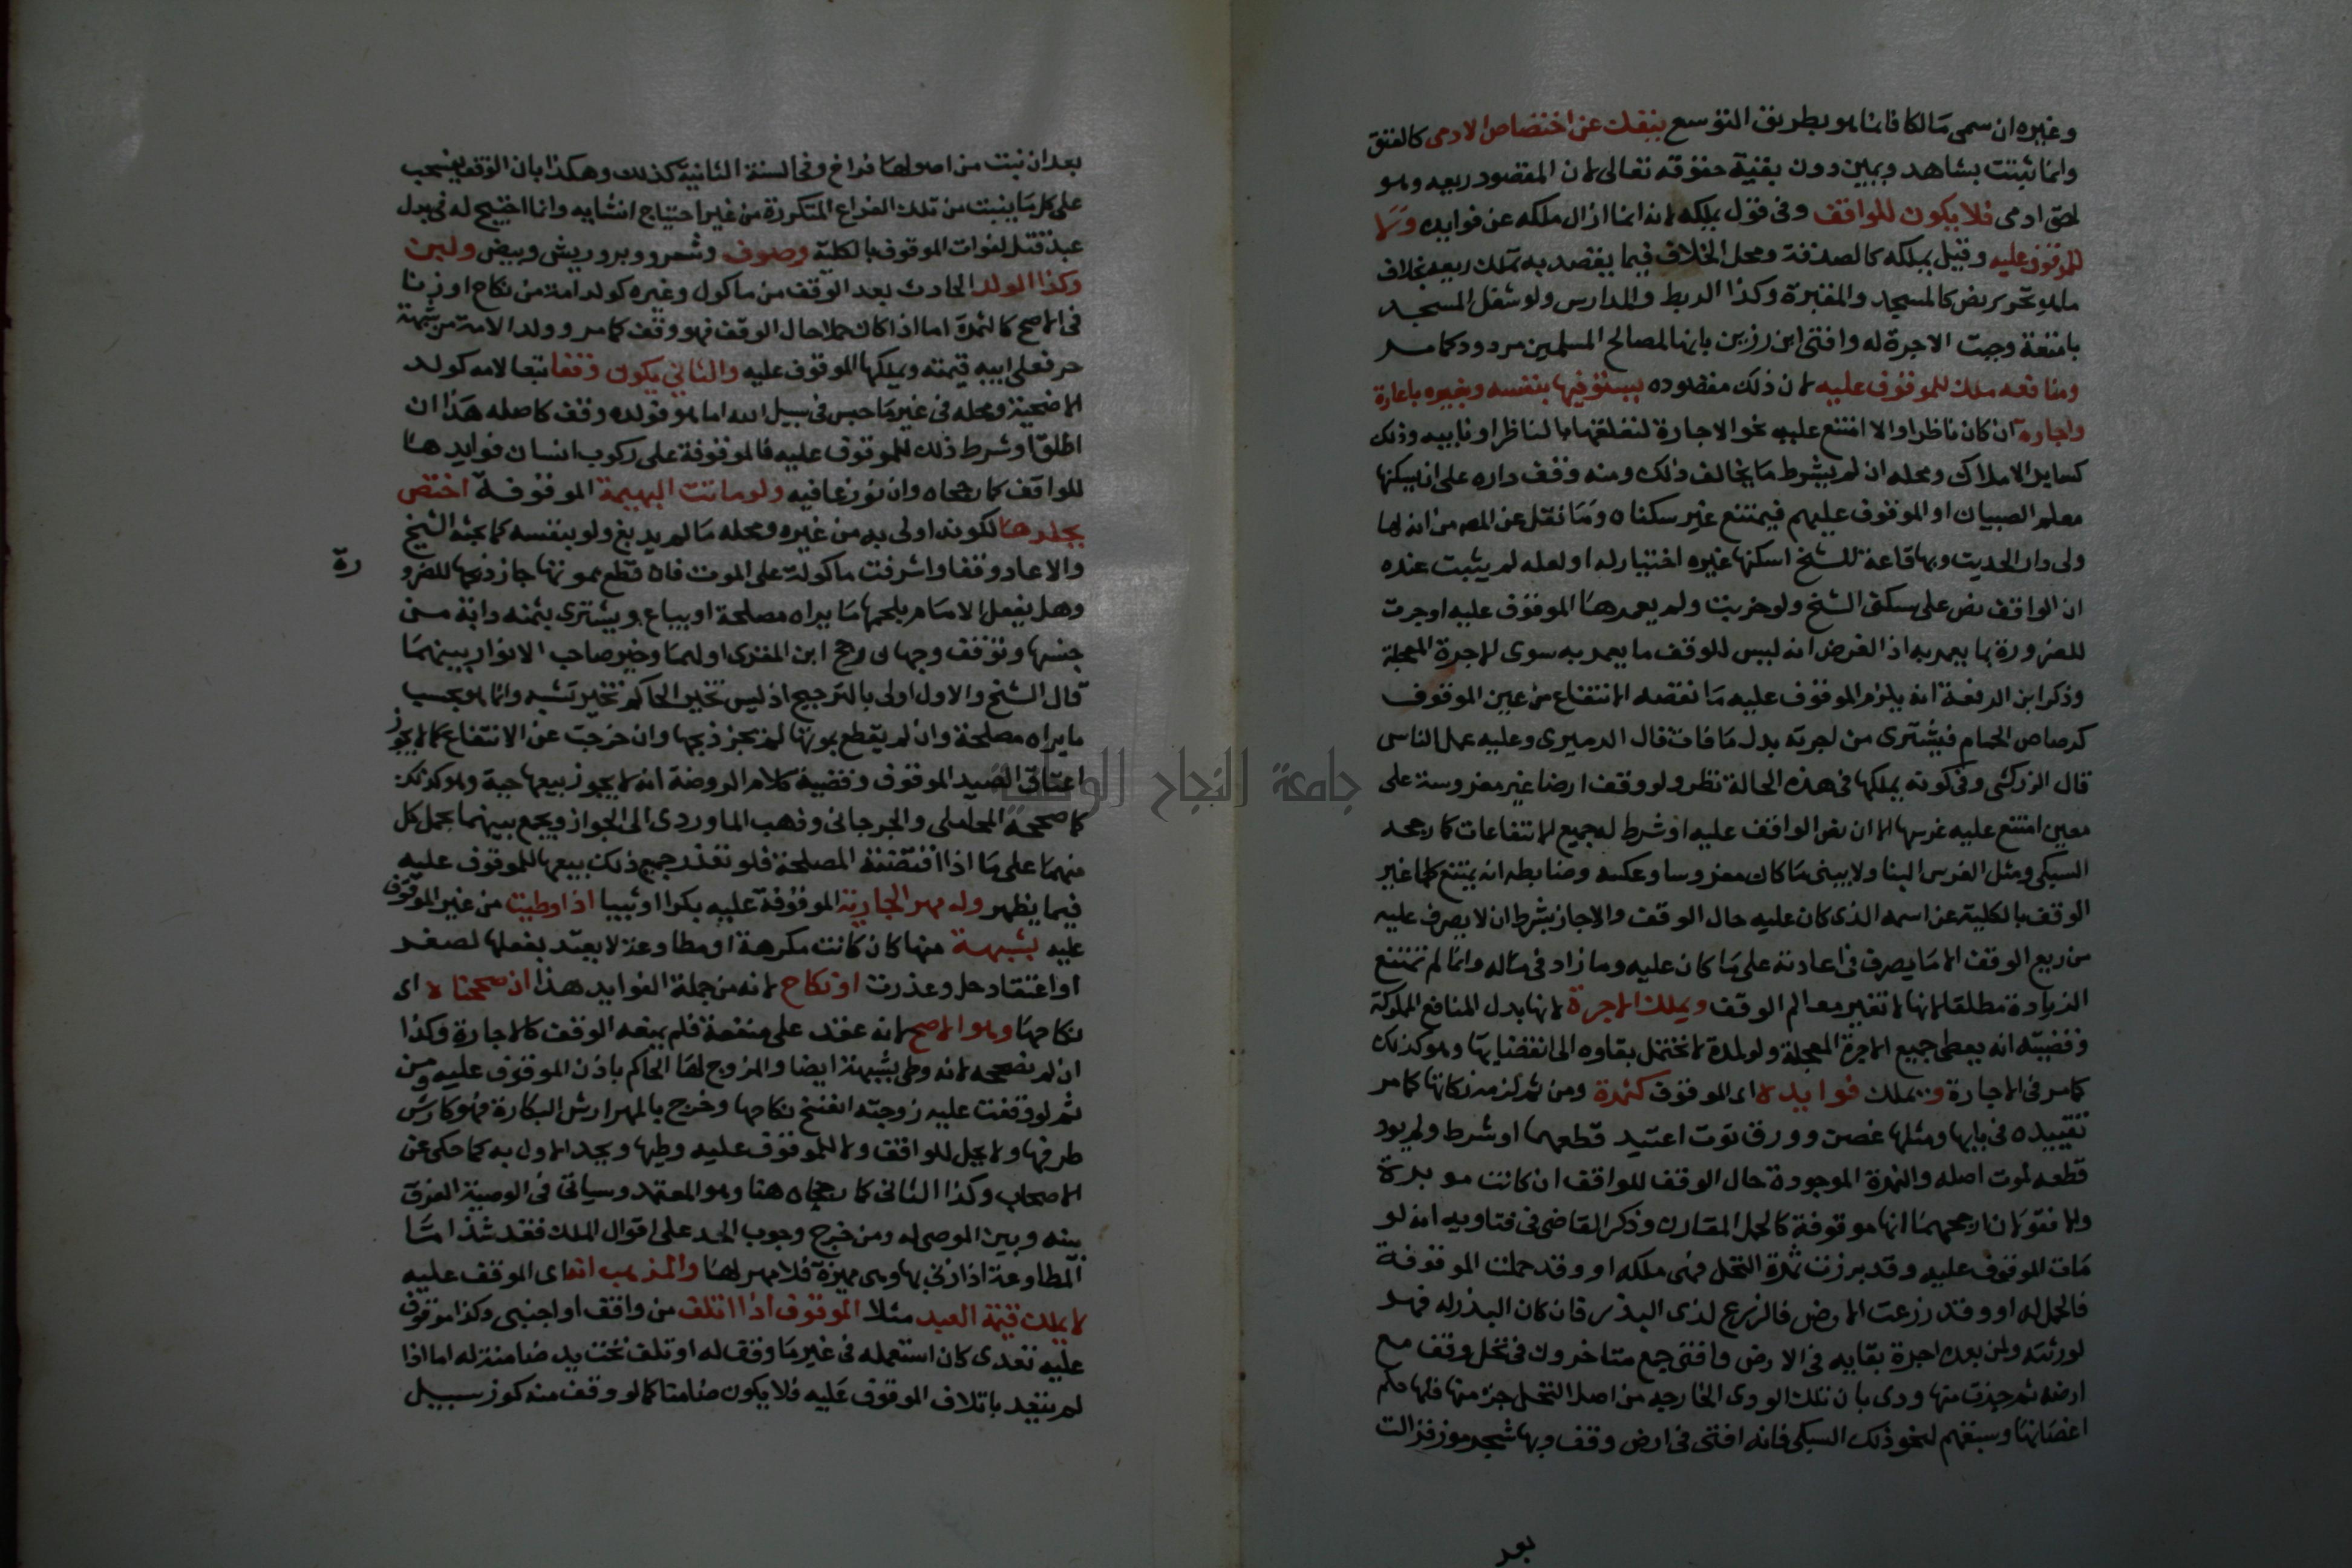 وغيره ان سمى مالكا فانما هو بطريق التوسع ينفك عن اختصاص الادمى كالعتق
وانما ثبتت بشاهد ويمين دون بقية حقوقه تعالى لان المقصود ريعه وهو
لحق ادمى فلا يكون للواقف وفى قول يملكه لانه انما ازال ملكه عن فوايده ولا
للموقوف عليه وقيل يملكه كالصدقة ومحل الخلاف فيما يقصد به تملك ريعه بخلاف
ما هو تحرير محض كالمسجد والمقبرة وكذا الربط والمدارس ولو شغل المسجد
بامتعة وجبت الاجرة له وافتى ابن رزين بانها لمصالح المسلمين مردود كما مر
ومنافعه ملك للموقوف عليه لان ذلك مقصوده يستوفيها بنفسه وبغيره باعارة
واجارة ان كان ناظرا والا امتنع عليه نحو الاجارة لتعلقها بالناظر او نايبه وذلك
كساير الاملاك ومحله ان لم يشرط ما يخالف ذلك ومنه وقف داره على ان يسكنها
معلم الصبيان او الموقوف عليهم فيمتنع غير سكناه وما نقل عن المصـ من انه لما
ولى دار الحديث وبها قاعة للشيخ اسكنها غيره اختيار له او لعله لم يثبت عنده
ان الواقف نص على سكنى الشيخ ولو خربت ولم يعمرها الموقوف عليه اوجرت
للضرورة بما يعمر به اذ الفرض انه ليس للوقف ما يعمر به سوى الاجرة المعجلة
وذكر ابن الرفعة انه يلزم الموقوف عليه ما نقصه الانتفاع من عين الموقوف
كرصاص الحمام فيشترى من اجرته بدل ما فات قال الدميرى وعليه عمل الناس
قال الزركشى وفى كونه يملكها فى هذه الحالة نظر ولو وقف ارضا غير مغروسة على
معين امتنع عليه غرسها الا ان نص الواقف عليه او شرط له جميع الانتفاعات كما رجحه
السبكى ومثل الغرس البنا ولا يبنى ما كان مغروسا وعكسه وضابطه انه يمتنع كلما غير
الوقف بالكلية عن اسمه الذى كان عليه حال الوقف والا جاز بشرط ان لا يصرف عليه
من ريع الوقف الا ما يصرف فى اعادته على ما كان عليه وما زاد فى ماله وانما لم تمتنع
الزيادة مطلقا لانها لا تغير معالم الوقف ويملك الاجرة لانها بدل المنافع المملوكة
وقضيته انه يعطى جميع الاجرة المعجلة ولو لمدة لا يحتمل بقاوه الى انقضايها وهو كذلك
كما مر فى الاجارة و يملك فوايده اى الموقوف كثمرة ومن ثم لزمه زكاتها كما مر
تقييده فى بابها ومثلها غصن وورق توت اعتيد قطعهما او شرط ولم يود
قطعه لموت اصله والثمرة الموجودة حال الوقف للواقف ان كانت موبرة
والا فقولان ارجحهما انها موقوفة كالحمل المقارن وذكر القاضى فى فتاويه انه لو
مات الموقوف عليه وقد برزت ثمرة النخل فهى ملكه او وقد حملت الموقوفة
فالحمل له او وقد زرعت الارض فالزرع لذى البذر فان كان البذر له فهو
لورثته ولمن بعده اجرة بقايه فى الارض وافتى جمع متاخرون فى نخل وقف مع
ارضه ثم حدث منها ودى بان تلك الودى الخارجه من اصل النخل جزء منها فلها حكم
اغصانها وسبقهم لنحو ذلك السبكى فانه افتى فى ارض وقف وبها شجر موز فزالت
بعد
بعد ان نبت من اصولها فراخ وفى السنة الثانية كذلك وهكذا بان الوقف ينسحب
على كل ما ينبت من تلك الفراخ المتكررة من غير احتياج انشايه وانما احتيج له فى بدل
عبد قتل لفوات الموقوف بالكلية وصوف وشعر ووبر وريش وبيض ولبن
وكذا الولد الحادث بعد الوقف من ماكول وغيره كولد امة من نكاح او زنا
فى الاصح كالثمرة اما اذا كان حملا حال الوقف فهو وقف كما مر وولد الامة من شبهة
حر فعلى ابيه قيمته ويملكها الموقوف عليه والثانى يكون وقفا تبعا لامه كولد
الاضحية ومحله فى غير ما حبس فى سبيل الله اما هو فولده وقف كاصله هذا ان
اطلق او شرط ذلك للموقوف عليه فالموقوفة على ركوب انسان فوايدها
للواقف كما رجحاه وان نوزعا فيه ولو ماتت البهيمة الموقوفة اختص
بجلدها لكونه اولى به من غيره ومحله ما لم يدبغ ولو بنفسه كما بحثه الشيخ
والا عاد وقفا ولو اشرفت ماكولة على الموت فان قطع بموتها جاز ذبحها للضرو
رة
وهل يفعل الامام بلحمها ما يراه مصلحة او يباع ويشترى بثمنه دابة من
جنسها وتوقف وجهان رجح ابن المقرى اولهما وخير صاحب الانوار بينهما
قال الشيخ والاول اولى بالترجيح اذ ليس تخيير الحاكم تخيير تشه وانما هو بحسب
ما يراه مصلحة وان لم يقطع بموتها لم يجز ذبحها وان خرجت عن الانتفاع كما لا يجوز
اعتاق العبد الموقوف وقضية كلام الروضة انه لا يجوز بيعها حية وهو كذلك
كما صححه المحاملى والجرجانى وذهب الماوردى الى الجواز ويجمع بينهما بحمل كل
منهما على ما اذا اقتضته المصلحة فلو تعذر جميع ذلك بيعها للموقوف عليه
فيما يظهر وله مهر الجارية الموقوفة عليه بكرا او ثيبا اذا وطيت من غير الموقوف
عليه بشبهة منها كان كانت مكرهة او مطاوعة لا يعتد بفعلها لصغر
او اعتقاد حل وعذرت او نكاح لانه من جملة الفوايد هذا ان صححناه اى
نكاحها وهو الاصح لانه عقد على منفعة فلم يمنعه الوقف كالاجارة وكذا
ان لم نصححه لانه وطى بشبهة ايضا والمزوج لها الحاكم باذن الموقوف عليه ومن
ثم لو وقفت عليه زوجته انفسخ نكاحها وخرج بالمهر ارش البكارة فهو كارش
طرفها ولا يحل للواقف ولا للموقوف عليه وطيها ويحد الاول به كما حكى عن
الاصحاب وكذا الثانى كما رجحاه هنا وهو المعتمد وسياتى فى الوصية الفرق
بينه وبين الموصى له ومن خرج وجوب الحد على اقوال الملك فقد شذ اما
المطاوعة اذا زنى بها وهى مميزة فلا مهر لها والمذهب انه اى الموقف عليه
لا يملك قيمة العبد مثلا الموقوف اذا اتلف من واقف او اجنبى وكذا موقوف
عليه تعدى كان استعمله فى غير ما وقف له او تلف تحت يد ضامنة له اما اذا
لم يتعد باتلاف الموقوف عليه فلا يكون ضامنا كما لو وقف منه كوز سبيل
جامعة النجاح الوطنية